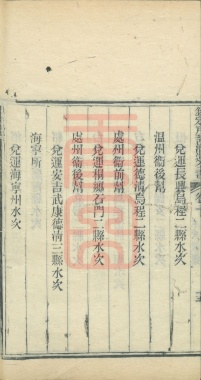 兌運長興烏程二縣水次
溫州衞後幫
兌運德淸烏程二縣水次
處州衞前幫
兌運桐鄕石門二縣水次
處州衞後幫
兌運安吉武康德淸三縣水次
海寧所
兌運海寧州水次